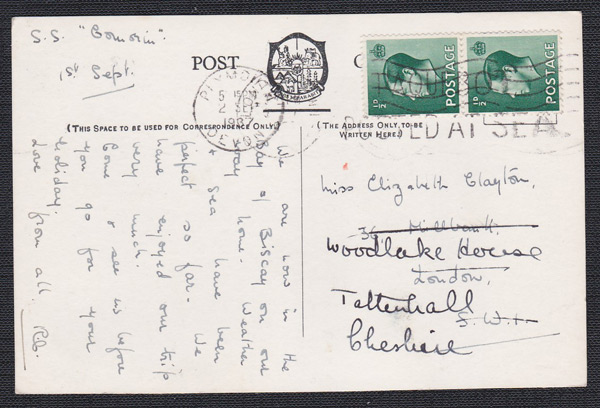 S.S. "Comorin".
1st Sept.
POST
C
POSTAGE
½D
POSTAGE
½D
PLYMOUTH
5 15 PM
2 SEP
193
DEVON
POSTED AT SEA
(THIS SPACE TO BE USED FOR CORRESPONDENCE ONLY.)
(THE ADDRESS ONLY TO BE
WRITTEN HERE.)
We are now in the
Bay of Biscay on our
way home. Weather
& sea have been
perfect so far. We
have enjoyed our trip
very much.
Come & see us before
you go for your
holiday.
Love from all.
Miss Elizabeth Clayton,
36 Millbank.
Woodlake House
London,
Tattenhall
S.W.1.
Cheshire